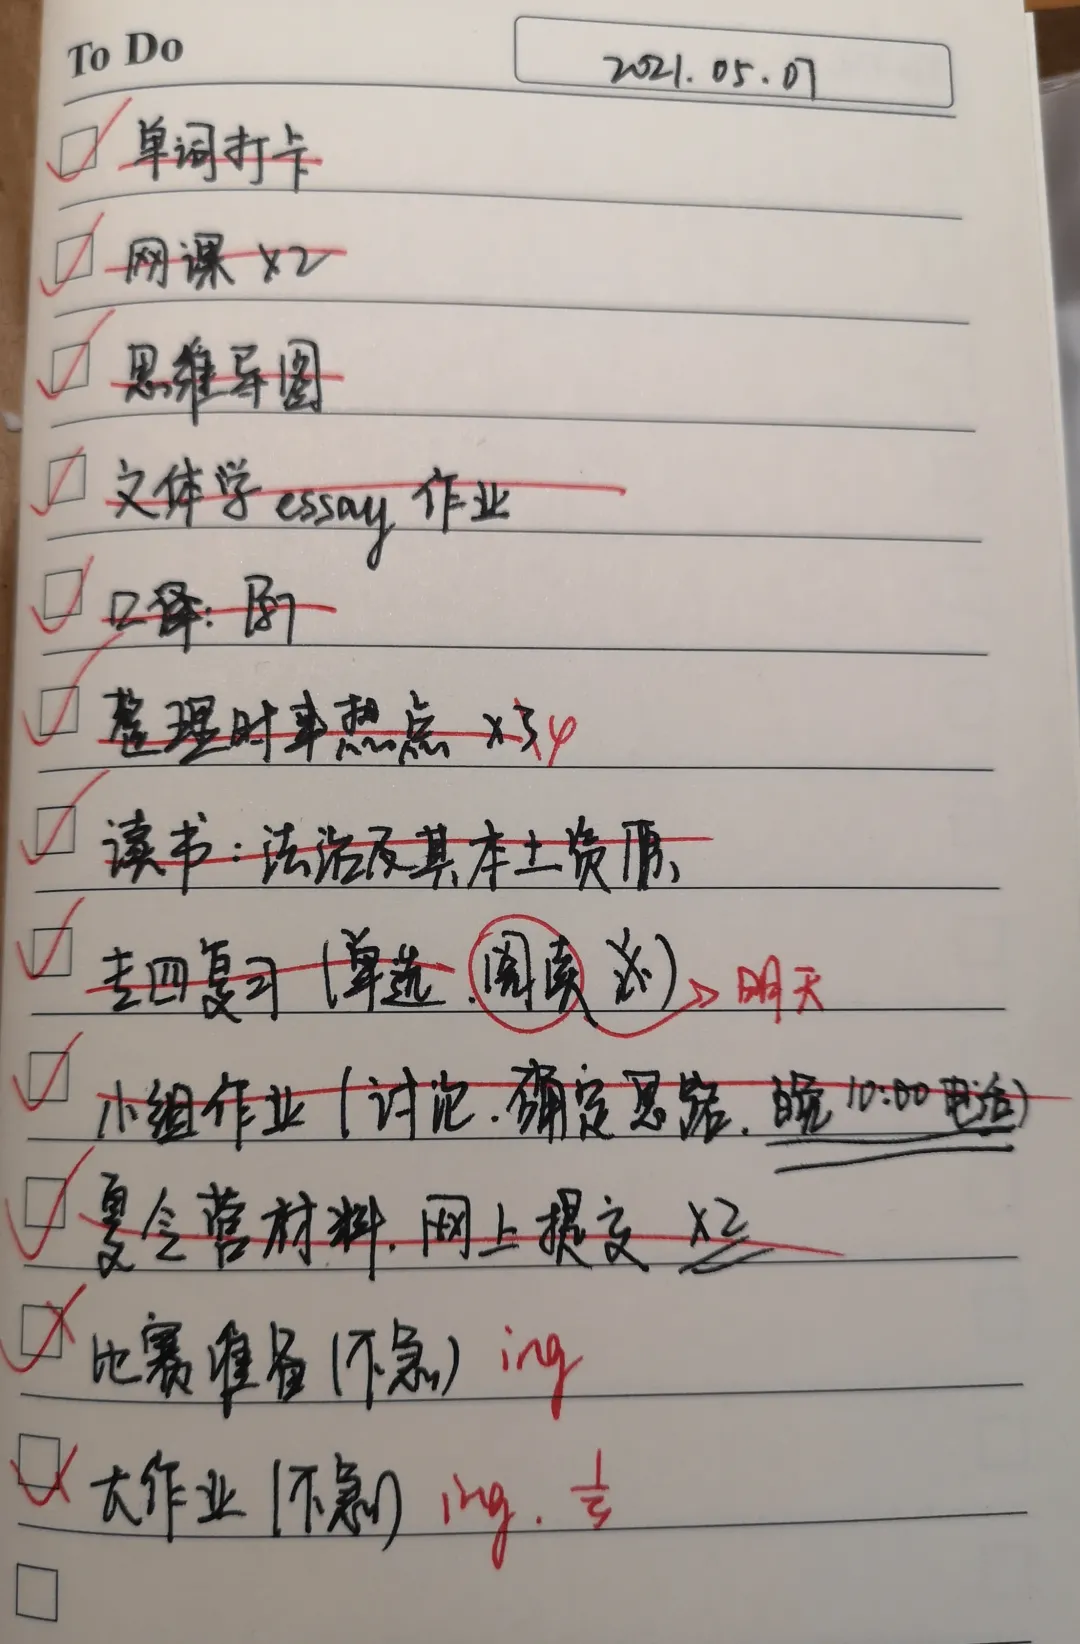 To Do
2021.05.07
单词打卡
网课 ×2
思维导图
文体学 essay 作业
口译:
整理时事热点 ×3 4
读书:法治及其本土资源
专四复习(单选.阅读 )→ 明天
小组作业(讨论.确定思路.晚10:00电话)
夏令营材料.网上提交 ×2
比赛准备(不急) ing
大作业(不急) ing. 1/3